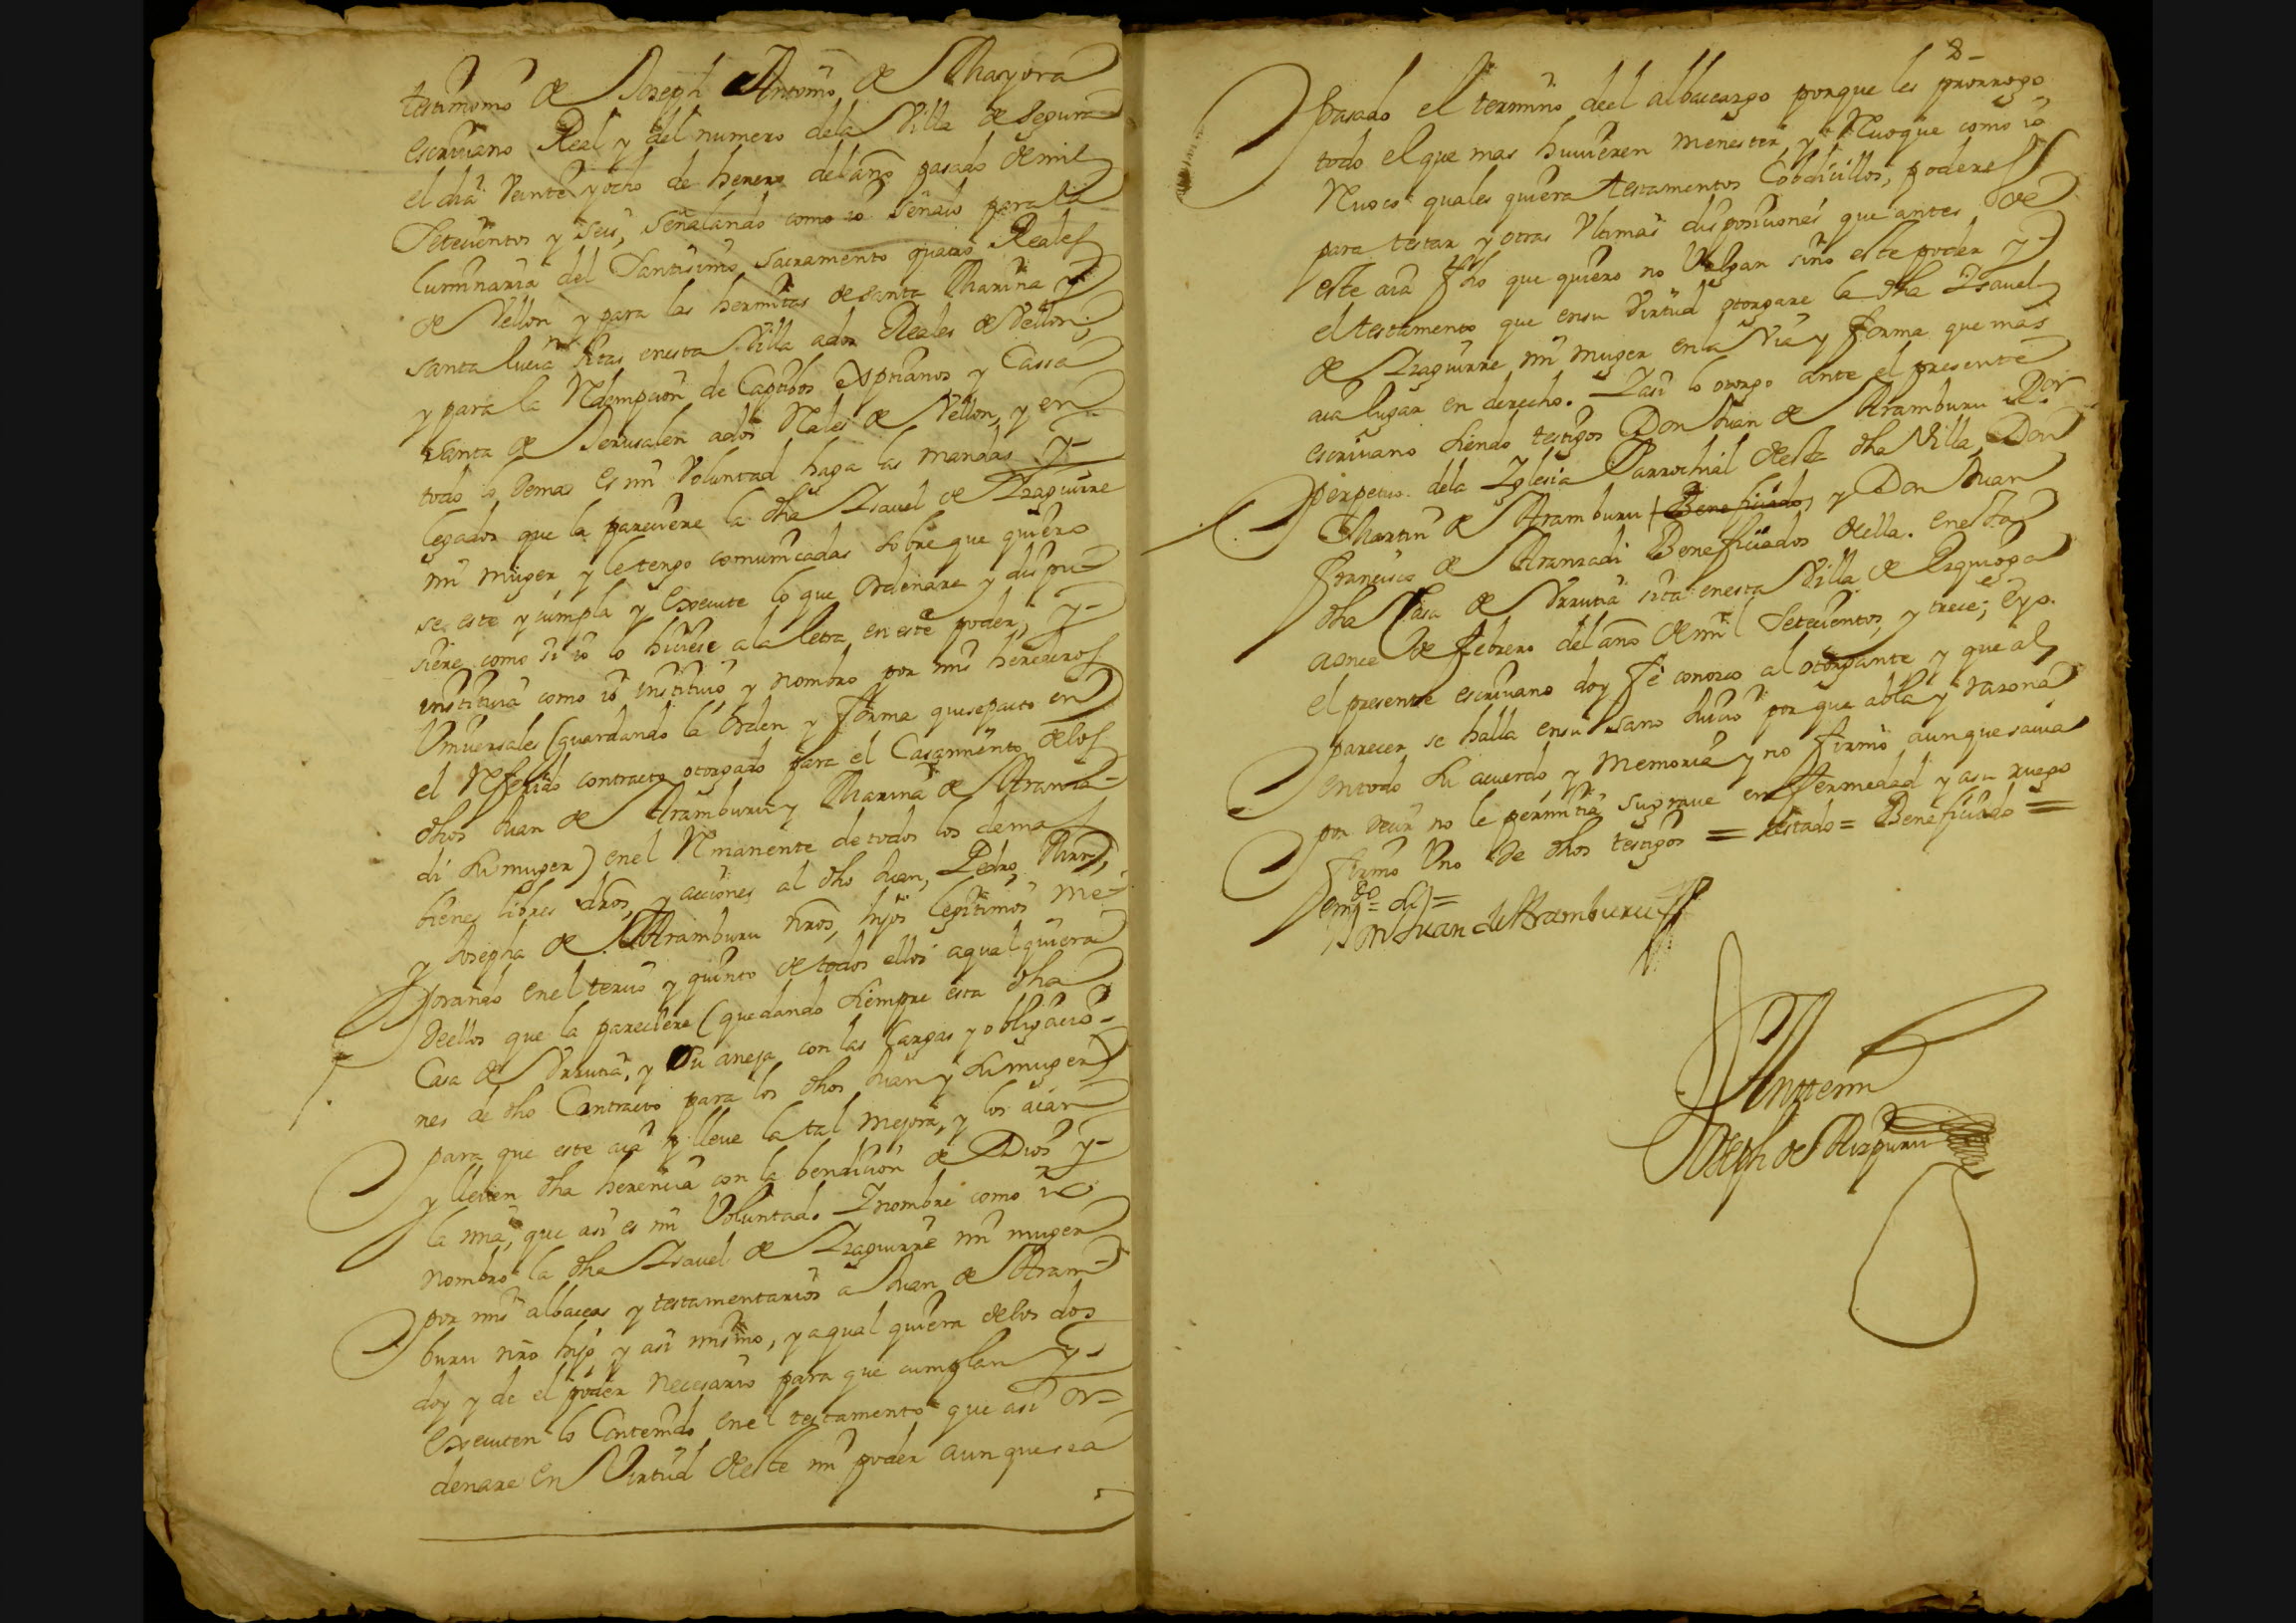 testimonio de Joseph Antonio de Mayora
escriuano Real y del numero dela Villa de Segura
el dia Veinte y ocho de henero del año pasado de mil
Setecientos y Seis, Señalando como io Señalo para la
luminaria del Santisimo Sacramento quatro Reales
de Vellon y para las hermitas de Santa Marina y
Santa lucia sitas enesta Villa ados Reales de Vellon,
y para la Redempcion de Captibos Xptianos y Cassa
santa de Jerusalen ados Reales de Vellon, y en
todo lo demas es mi Voluntad haga las mandas y
legados que la pareciere la dha Isauel de Izaguirre
mi muger, y le tengo comunicadas sobre que quiero
se este y cumpla y execute lo que ordenare y dispu-
siere como si io lo hiciese ala letra en este poder, y
instituia como io instituio, y nombro por mis herederos
Vniuersales (guardando la orden y forma que se pacto en
el Referido contracto otorgado para el Casamiento delos
dhos Juan de Aramburu y Marina de Aranza-
di su muger) enel Remanente de todos los demas
bienes libres dros, y acciones al dho Juan, Pedro,
y Josepha de Aramburu nros, hijos legitimos me-
jorando enel tercio y quinto de todos ellos aqualquiera
deellos que la pareciere (quedando siempre esta dha
Casa de Vrrutia, y su aneja con las Cargas y obligacio-
nes de dho Contracto para los dhos Juan y su muger)
para que este aia y lleue la tal mejora, y los aian
y lleuen dha herencia con la bendicion de Dios y
la mia, que asi es mi Voluntad. I nombre como io
nombro la dha Isauel de Izaguirre mi muger
por mis albaceas y testamentarios a Juan de Aram-
buru nro hijo, y asi mismo, y aqual quiera delos dos
doy y de el poder necesario para que cumplan y
executen lo Contenido enel testamento que asi or-
denare en Virtud deste mi poder aunque sea
8
pasado el termino deel albaceazgo porque les prorrogo
todo el que mas huuieren menester, y Reuoque como io
Reuoco quales quiera testamentos Cobdicillos, poderes
para testar y otras Vltimas disposiciones que antes de
este aia fho que quiero no Valgan sino este poder y
el testamento que ensu Virtud otorgare la dha Isauel
de Izaguirre mi muger en la Via y forma que mas
aia lugar en derecho. I asi lo otorgo ante el presente
escriuano siendo testigos Don Juan de Aramburu Ror
perpetuo dela Iglesia Parrochial deste dha Villa, Don
Martin de Aramburu Beneficiado, y Don Juan
francisco de Aranzadi Beneficiados della. enesta
dha Casa de Vrrutia sita enesta Villa de Ezquioga
aonce de febrero del año de mil Setecientos, y trece; e yo
el presente escriuano doy fe conozco al otorgante y que al
parecer se halla ensu sano Juicio por que abla y razona
entodo su acuerdo, y Memoria y no firmo aunque sauia
por decir no le permitia su graue enfermedad y asu ruego
firmo Vno de dhos testigos = testado = Beneficiado =
Don Juan de Aramburu
Antemi
Joseph de Aizpuru